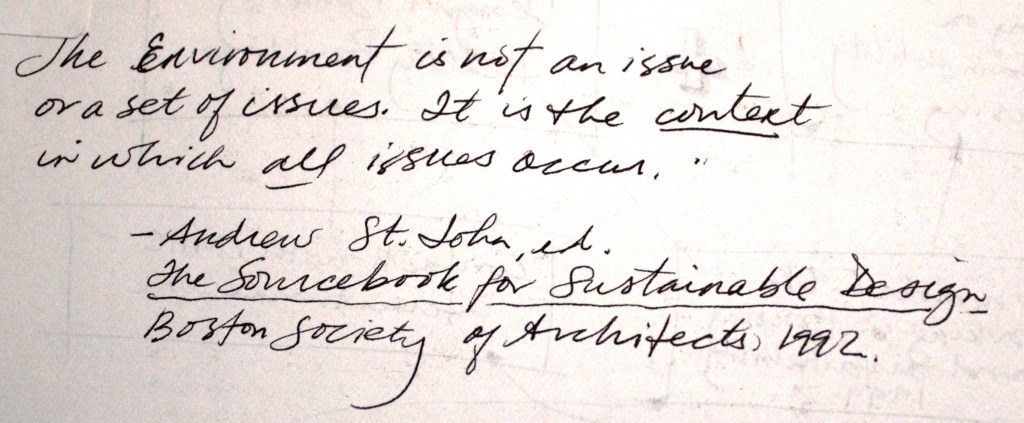 The Environment is not an issue
or a set of issues. It is the context
in which all issues occur."
- Andrew St. John, ed.
The Sourcebook for Sustainable Design
Boston Society of Architects, 1992.